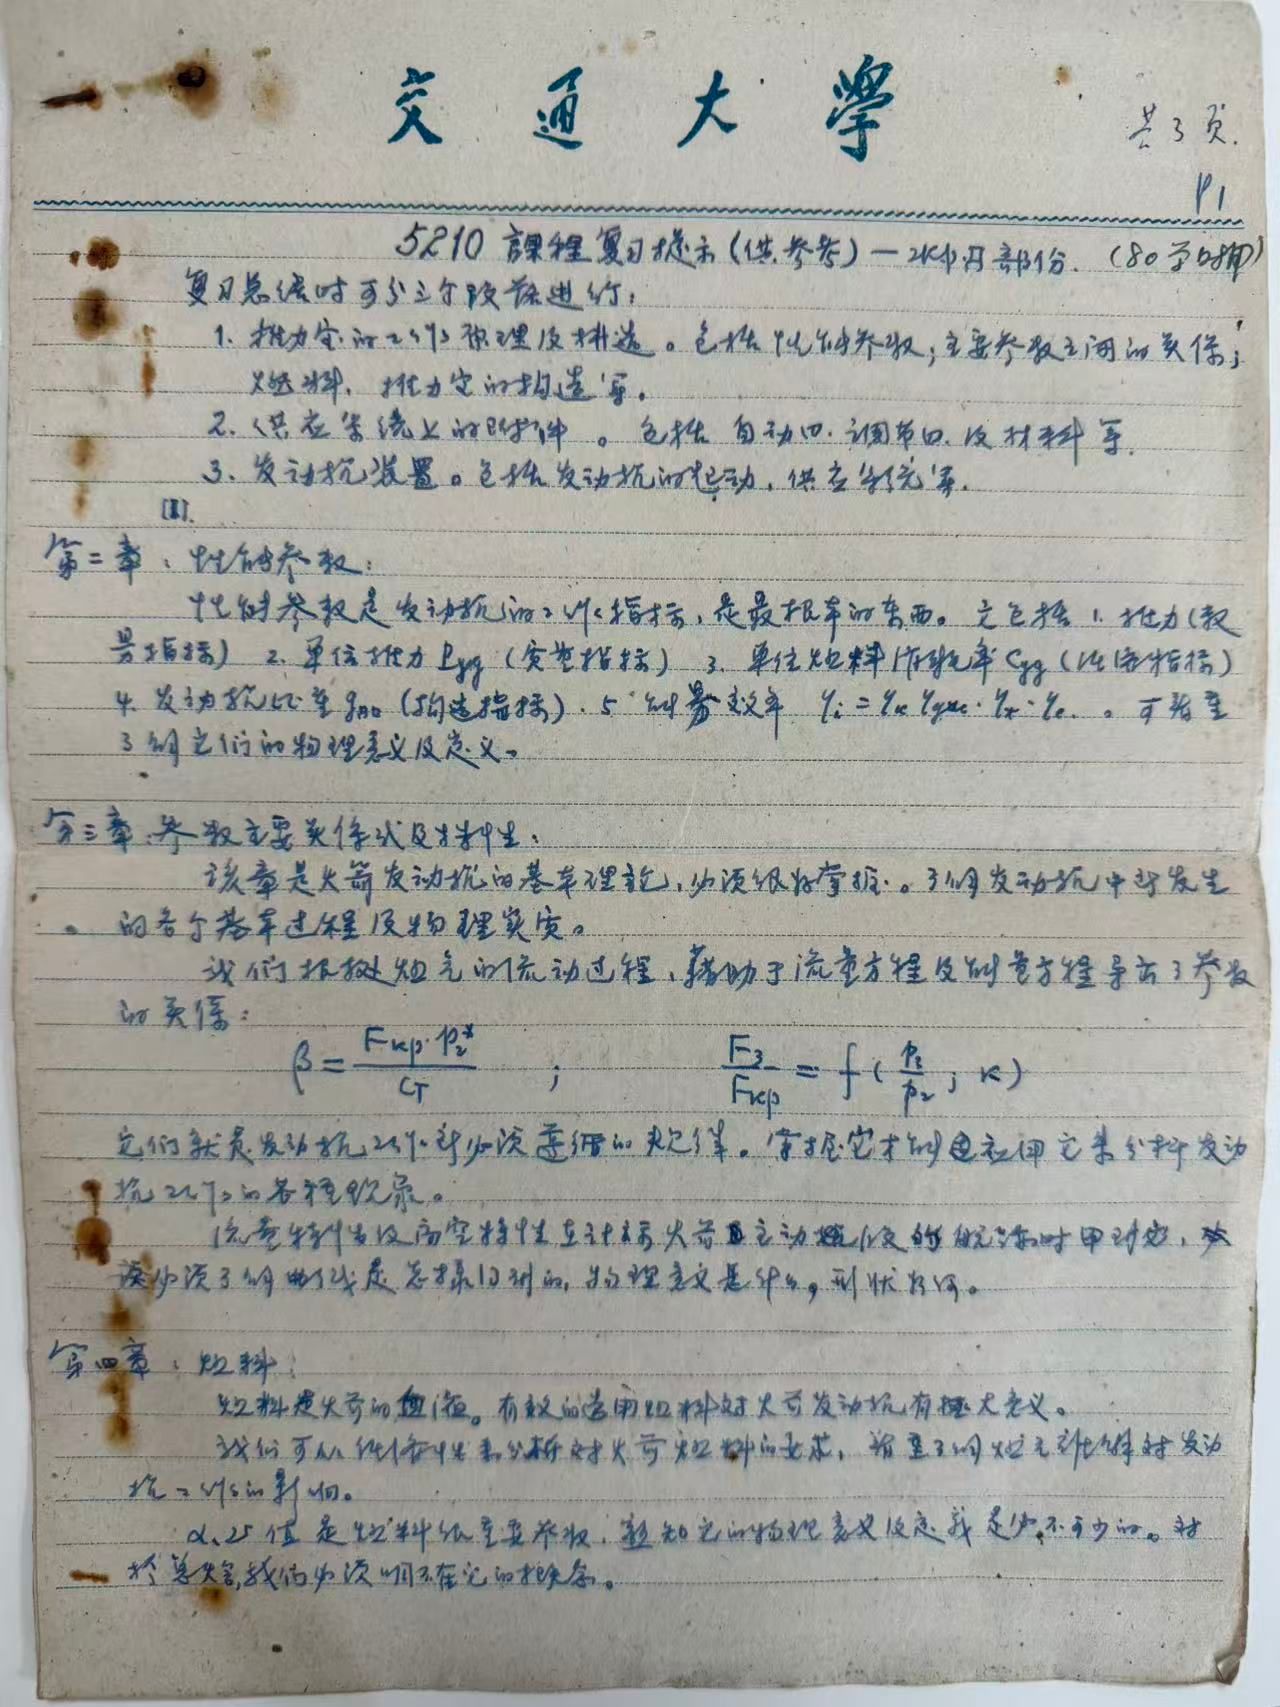 交通大學
共3页.
P1
5210 課程复习提示(供参考)— 部份. (80学时)
复习总结时可分三个段落进行:
1. 推力室的工作原理及构造。包括性能参数;主要参数之间的关系;
燃料. 推力室的构造等。
2. 供应系统上的附件 。包括自动 . 调节 . 及材料等.
3. 发动机装置。包括发动机的起动, 供应系统等.
[I].
第二章:性能参数:
性能参数是发动机的工作指标,是最根本的东西。它包括 1. 推力(数
量指标) 2. 单位推力 Pyg (质量指标) 3. 单位燃料消耗率 Cyg (经济指标)
4. 发动机比重 (构造指标). 5 能量效率 。可着重
了解它们的物理意义及定义。
第三章.参数主要关系式及特性:
该章是火箭发动机的基本理论,必须很好掌握.。了解发动机中所发生
的各个基本过程及物理实质。
我们根据燃气的流动过程,藉助于流量方程及能量方程导出了参数
的关系:
β = Fкр·p₂* / Cт ; F₃ / Fкр = f ( p₃ / p₂ ; к )
它们就是发动机工作时必须遵循的规律。掌握它才能 应用它来分析发动
机工作的各种现象。
流量特性及高空特性在计算火箭主动段的 时用到它,
必须了解曲线是怎样得到的,物理意义是什么,形状如何。
第四章:燃料:
燃料是火箭的血液。有效的选用燃料对火箭发动机有极大意义。
我们可从 来分析对火箭燃料的要求,着重了解燃料 对发动
机工作的影响。
α、υ 值是燃料很重要参数,熟知它的物理意义及定义是必不可少的。对
于 我们必须明确它的概念。